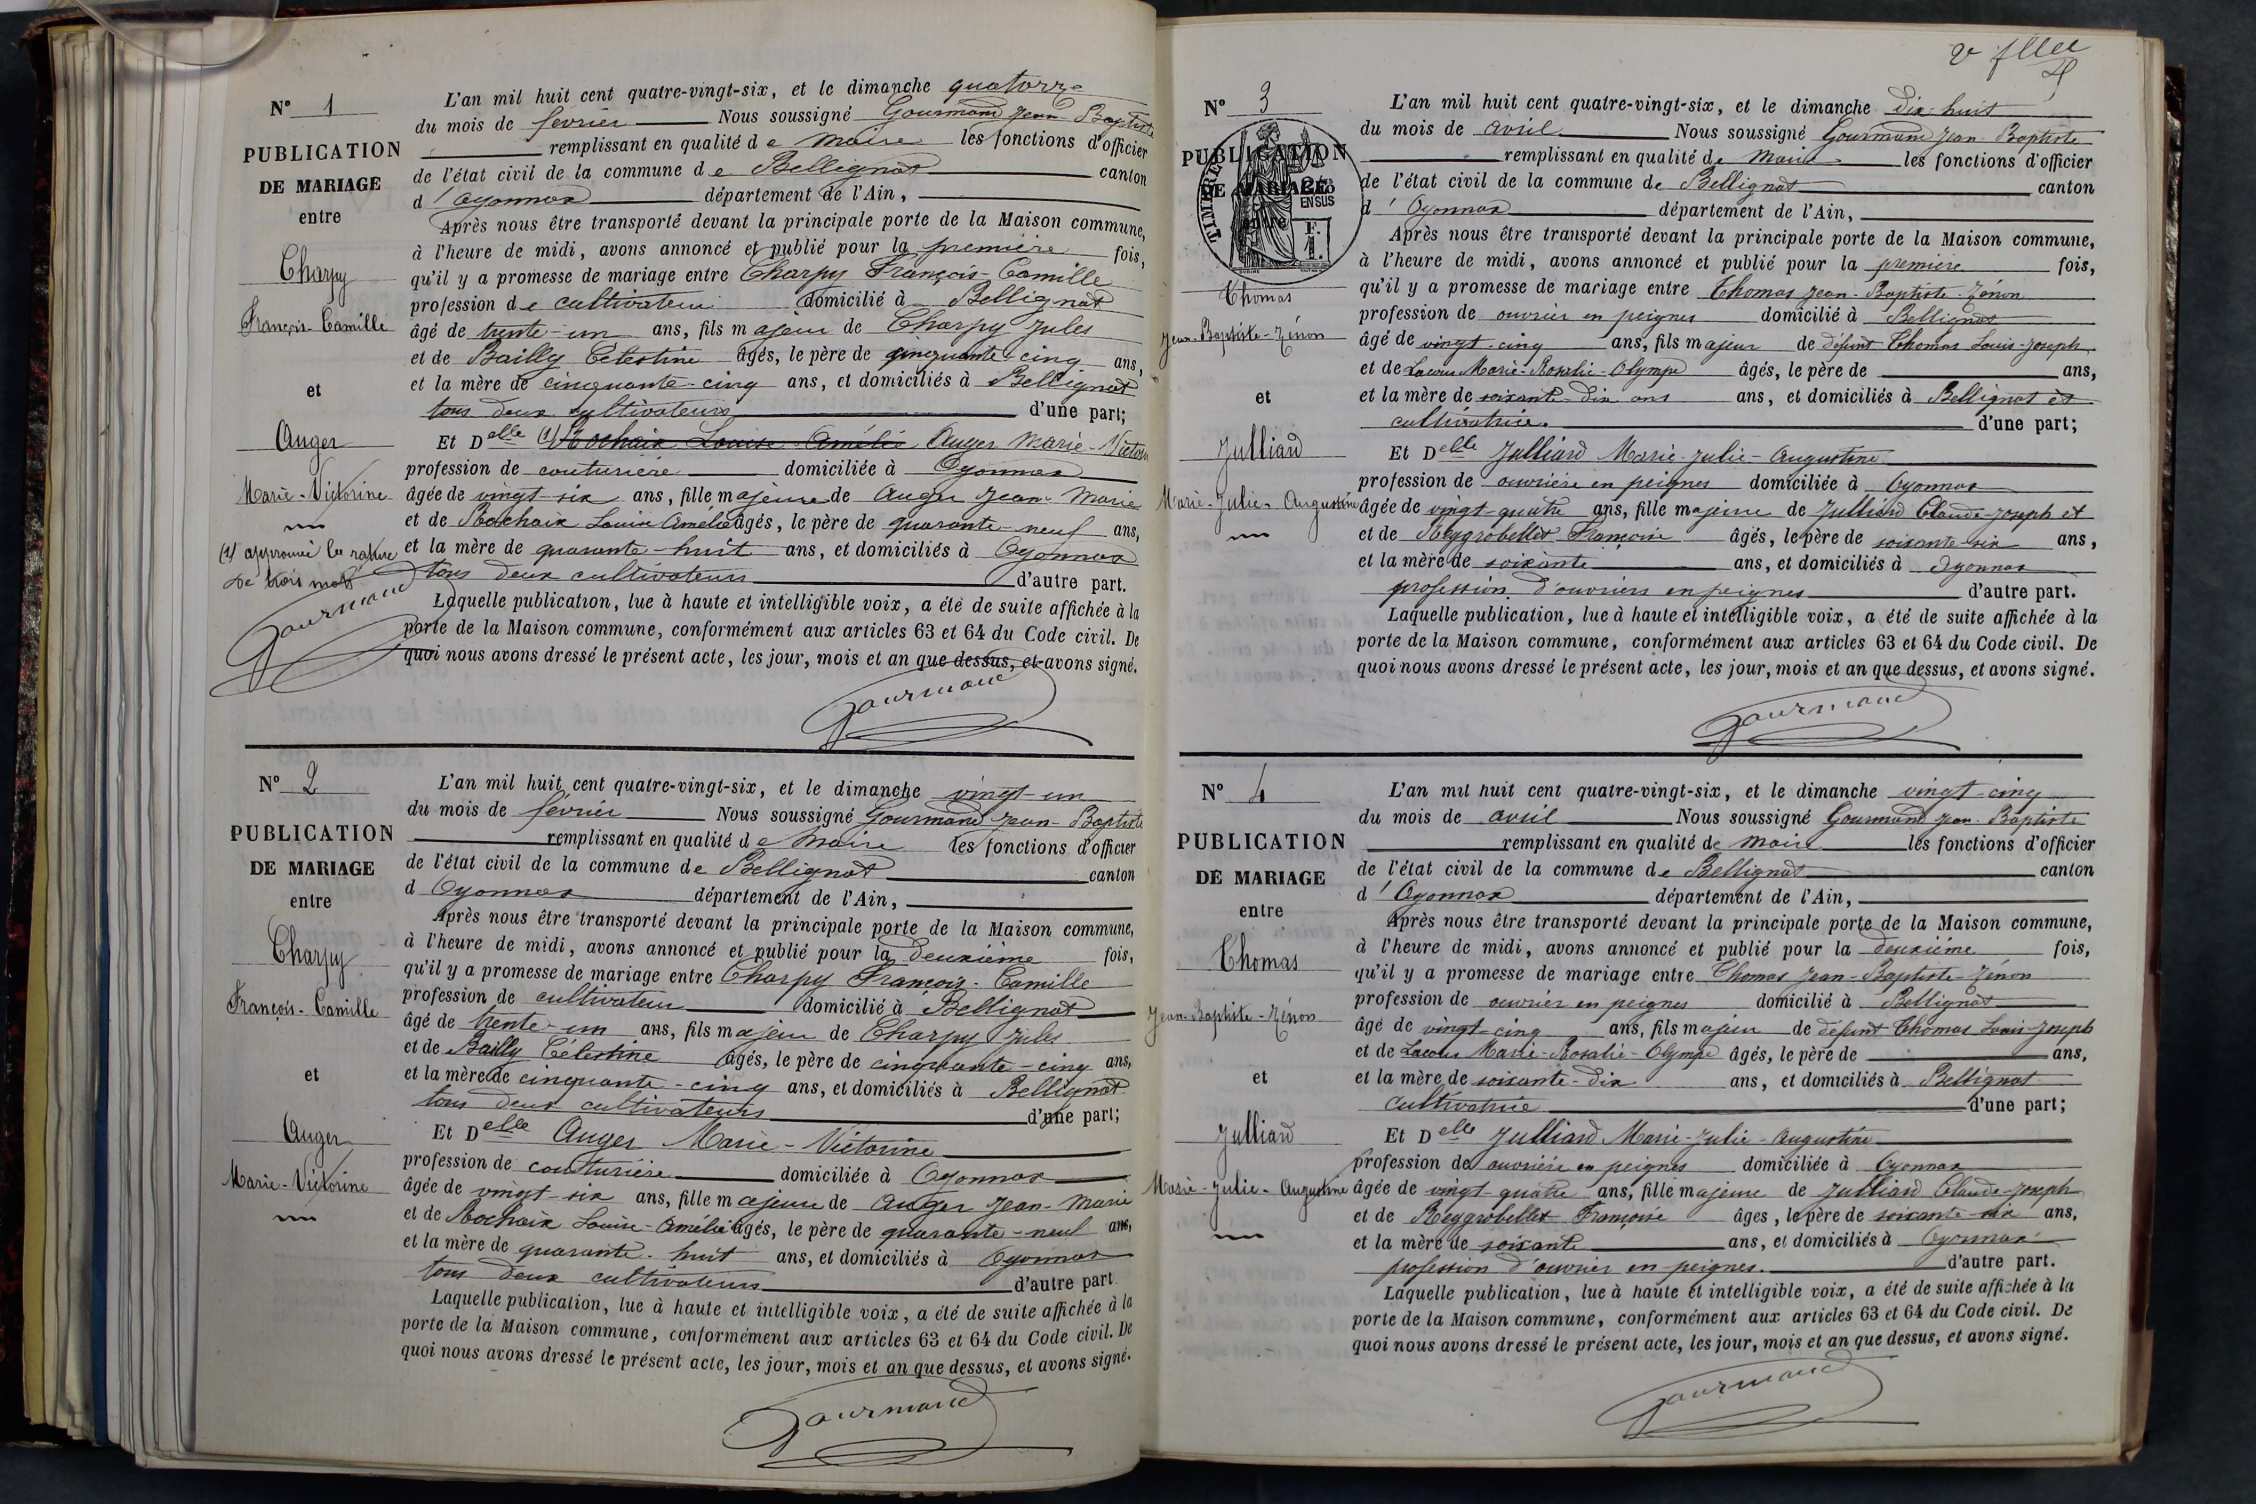 N° 1
PUBLICATION
DE MARIAGE
entre
Charpy
François-Camille
et
Auger
Marie-Victorine
(1) approuvé la rature
de trois mots
Gourmand
L'an mil huit cent quatre-vingt-six, et le dimanche quatorze
du mois de février Nous soussigné Gourmand Jean Baptiste
remplissant en qualité de Maire les fonctions d'officier
de l'état civil de la commune de Bellignat canton
d'Oyonnax département de l'Ain,
Après nous être transporté devant la principale porte de la Maison commune,
à l'heure de midi, avons annoncé et publié pour la première fois,
qu'il y a promesse de mariage entre Charpy François-Camille
profession de cultivateur domicilié à Bellignat
âgé de trente-un ans, fils majeur de Charpy Jules
et de Bailly Célestine âgés, le père de cinquante-cinq ans,
et la mère de cinquante-cinq ans, et domiciliés à Bellignat
tous deux cultivateurs d'une part;
Et Delle (1) Rochaix Louise Amélie Auger Marie-Victorine
profession de couturière domiciliée à Oyonnax
âgée de vingt-six ans, fille majeure de Auger Jean-Marie
et de Rochaix Louise Amélie âgés, le père de quarante-neuf ans,
et la mère de quarante-huit ans, et domiciliés à Oyonnax
tous deux cultivateurs d'autre part.
Laquelle publication, lue à haute et intelligible voix, a été de suite affichée à la
porte de la Maison commune, conformément aux articles 63 et 64 du Code civil. De
quoi nous avons dressé le présent acte, les jour, mois et an que dessus, et avons signé.
Gourmand
N° 2
PUBLICATION
DE MARIAGE
entre
Charpy
François-Camille
et
Auger
Marie-Victorine
L'an mil huit cent quatre-vingt-six, et le dimanche vingt-un
du mois de février Nous soussigné Gourmand Jean-Baptiste
remplissant en qualité de Maire les fonctions d'officier
de l'état civil de la commune de Bellignat canton
d Oyonnax département de l'Ain,
Après nous être transporté devant la principale porte de la Maison commune,
à l'heure de midi, avons annoncé et publié pour la deuxième fois,
qu'il y a promesse de mariage entre Charpy François-Camille
profession de cultivateur domicilié à Bellignat
âgé de trente-un ans, fils majeur de Charpy Jules
et de Bailly Célestine âgés, le père de cinquante-cinq ans,
et la mère de cinquante-cinq ans, et domiciliés à Bellignat
tous deux cultivateurs d'une part;
Et Delle Auger Marie-Victorine
profession de couturière domiciliée à Oyonnax
âgée de vingt-six ans, fille majeure de Auger Jean-Marie
et de Rochaix Louise-Amélie âgés, le père de quarante-neuf ans,
et la mère de quarante-huit ans, et domiciliés à Oyonnax
tous deux cultivateurs d'autre part.
Laquelle publication, lue à haute et intelligible voix, a été de suite affichée à la
porte de la Maison commune, conformément aux articles 63 et 64 du Code civil. De
quoi nous avons dressé le présent acte, les jour, mois et an que dessus, et avons signé.
Gourmand
N° 3
PUBLICATION
DE MARIAGE
entre
TIMBRE
EN SUS
Thomas
Jean-Baptiste-Zénon
et
Julliard
Marie-Julie-Augustine
L'an mil huit cent quatre-vingt-six, et le dimanche dix-huit
du mois de avril Nous soussigné Gourmand Jean-Baptiste
remplissant en qualité de Maire les fonctions d'officier
de l'état civil de la commune de Bellignat canton
d'Oyonnax département de l'Ain,
Après nous être transporté devant la principale porte de la Maison commune,
à l'heure de midi, avons annoncé et publié pour la première fois,
qu'il y a promesse de mariage entre Thomas Jean-Baptiste-Zénon
profession de ouvrier en peignes domicilié à Bellignat
âgé de vingt-cinq ans, fils majeur de défunt Thomas Louis-Joseph
et de Lacour Marie-Rosalie-Olympe âgés, le père de ans,
et la mère de soixante-dix ans ans, et domiciliés à Bellignat et
cultivatrice. d'une part;
Et Delle Julliard Marie-Julie-Augustine
profession de ouvrière en peignes domiciliée à Oyonnax
âgée de vingt-quatre ans, fille majeure de Julliard Claude-Joseph et
et de Reygrobellet Françoise âgés, le père de soixante-six ans,
et la mère de soixante ans, et domiciliés à Oyonnax
profession d'ouvriers en peignes d'autre part.
Laquelle publication, lue à haute et intelligible voix, a été de suite affichée à la
porte de la Maison commune, conformément aux articles 63 et 64 du Code civil. De
quoi nous avons dressé le présent acte, les jour, mois et an que dessus, et avons signé.
Gourmand
N° 4
PUBLICATION
DE MARIAGE
entre
Thomas
Jean-Baptiste-Zénon
et
Julliard
Marie-Julie-Augustine
L'an mil huit cent quatre-vingt-six, et le dimanche vingt-cinq
du mois de avril Nous soussigné Gourmand Jean-Baptiste
remplissant en qualité de Maire les fonctions d'officier
de l'état civil de la commune de Bellignat canton
d'Oyonnax département de l'Ain,
Après nous être transporté devant la principale porte de la Maison commune,
à l'heure de midi, avons annoncé et publié pour la deuxième fois,
qu'il y a promesse de mariage entre Thomas Jean-Baptiste-Zénon
profession de ouvrier en peignes domicilié à Bellignat
âgé de vingt-cinq ans, fils majeur de défunt Thomas Louis-Joseph
et de Lacour Marie-Rosalie-Olympe âgés, le père de ans,
et la mère de soixante-dix ans, et domiciliés à Bellignat
cultivatrice d'une part;
Et Delle Julliard Marie-Julie-Augustine
profession de ouvrière en peignes domiciliée à Oyonnax
âgée de vingt-quatre ans, fille majeure de Julliard Claude-Joseph
et de Reygrobellet Françoise âgés, le père de soixante-six ans,
et la mère de soixante ans, et domiciliés à Oyonnax
profession d'ouvrier en peignes. d'autre part.
Laquelle publication, lue à haute et intelligible voix, a été de suite affichée à la
porte de la Maison commune, conformément aux articles 63 et 64 du Code civil. De
quoi nous avons dressé le présent acte, les jour, mois et an que dessus, et avons signé.
Gourmand